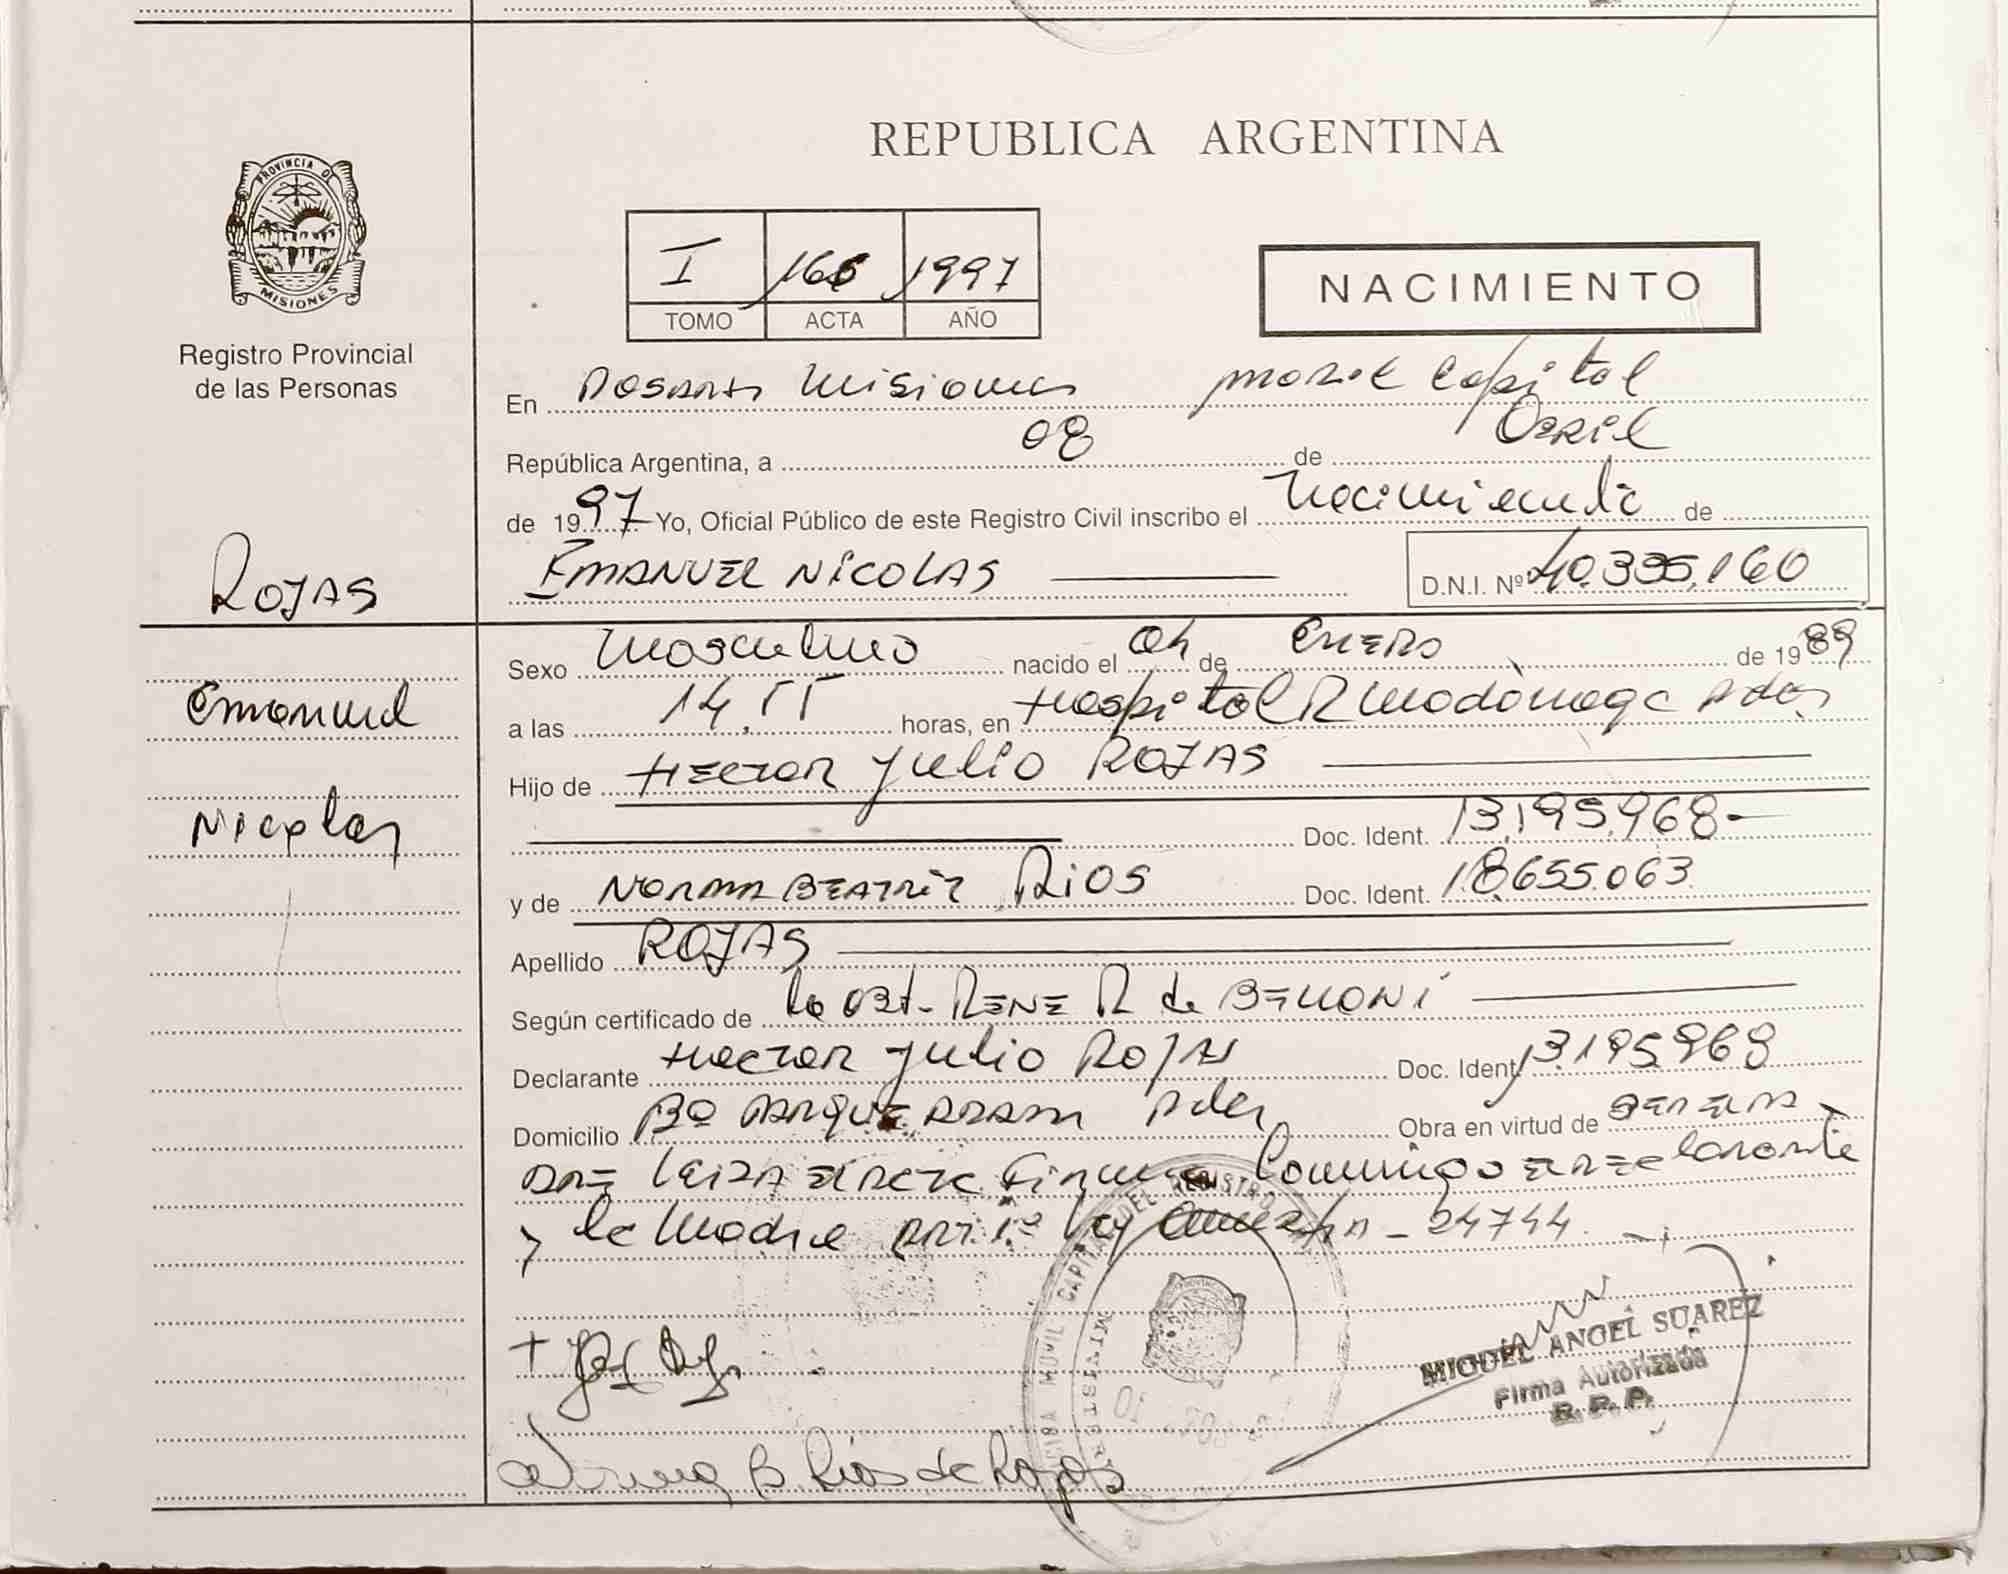 REPUBLICA ARGENTINA
PROVINCIA DE
MISIONES
Registro Provincial
de las Personas
I 166 1997
TOMO ACTA AÑO
NACIMIENTO
En Posadas Misiones Capital
República Argentina, a 08 de Abril
de 1997 Yo, Oficial Público de este Registro Civil inscribo el Nacimiento de
EMANUEL NICOLAS D.N.I. Nº 40.335.160
ROJAS
Emanuel
Nicolas
Sexo Masculino nacido el 04 de ENERO de 1989
a las 14. horas, en Hospital R Madariaga Pdas
Hijo de HECTOR JULIO ROJAS
Doc. Ident. 13.195.968-
y de NORMA BEATRIZ RIOS Doc. Ident. 18.655.063
Apellido ROJAS
Según certificado de la OBT. RENE R de
Declarante HECTOR JULIO ROJAS Doc. Ident. 13.195.968
Domicilio Bº PARQUE ADAM Pdas Obra en virtud de
Firma Conmigo declarante
y la Madre ART. 1º Ley 24744
MIGUEL ANGEL SUAREZ
Firma Autorizada
R.P.P.
Norma B. Rios de Rojas